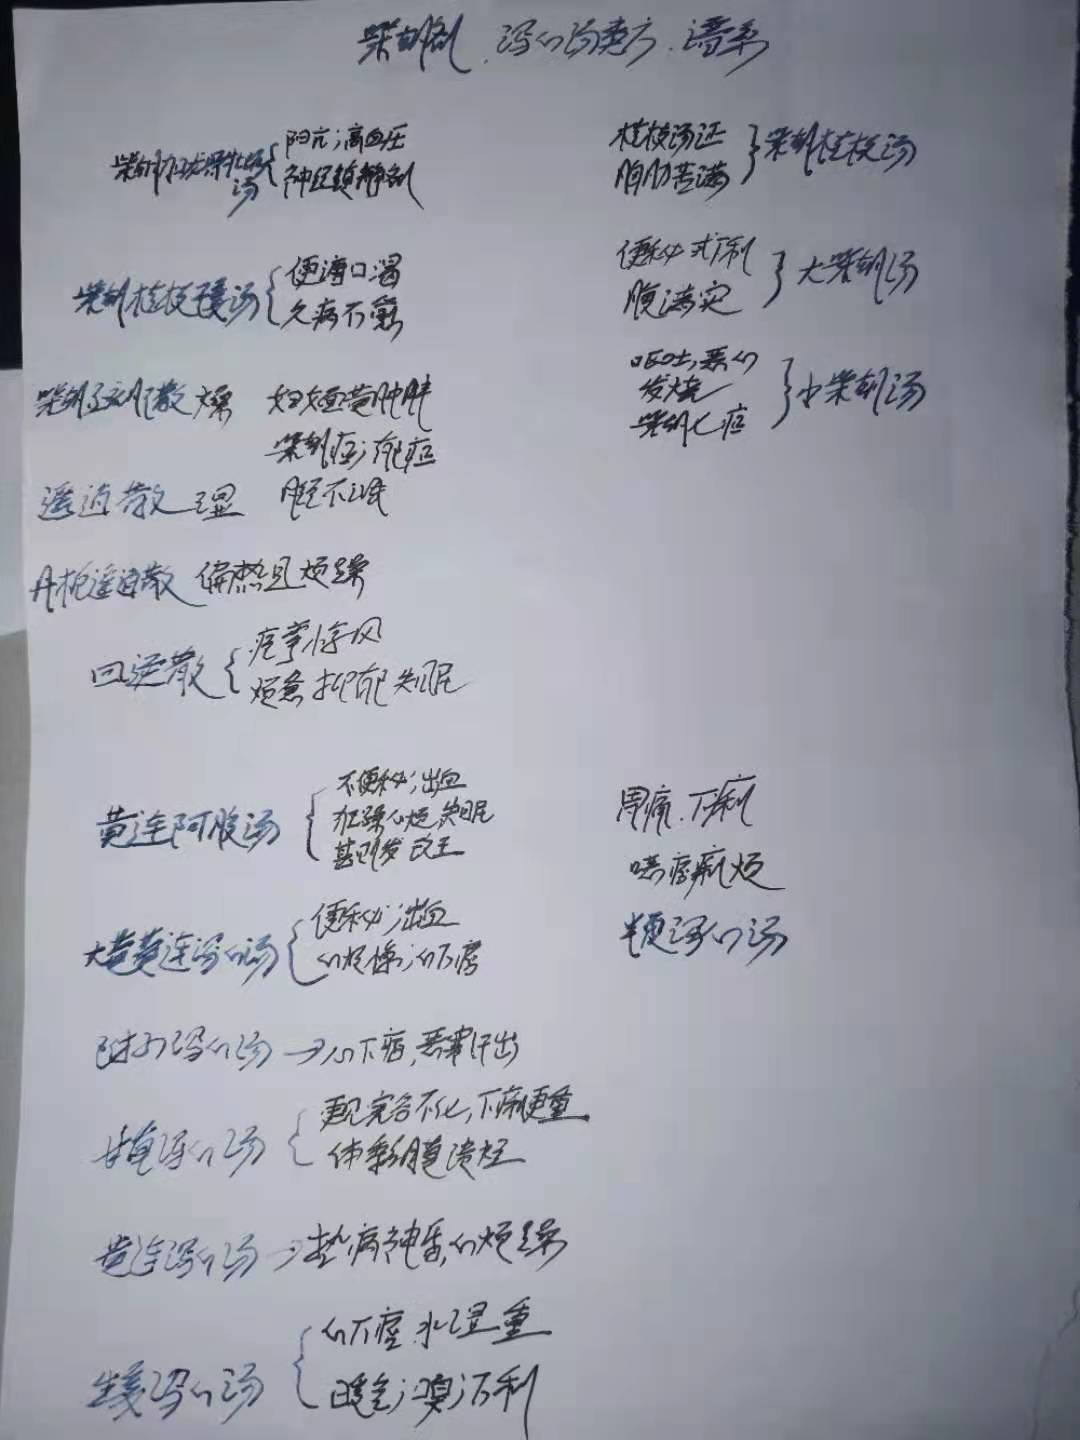 柴胡剂、泻心汤类方、谱系
柴胡加龙骨牡蛎汤
阳亢；高血压
神经镇静剂
桂枝汤证
胸胁苦满
柴胡桂枝汤
柴胡桂枝干姜汤
便溏口渴
久病不愈
便秘或下利
腹满实
大柴胡汤
柴胡 散 燥 妇女面黄肿胖
柴胡症；郁症
呕吐，恶心
发烧
柴胡七症
小柴胡汤
逍遥散 湿 胫不
丹栀逍遥散 偏热且烦躁
四逆散
痉挛 风
烦急 抑郁失眠
黄连阿胶汤
不便秘；出血
狂躁心烦 失眠
甚则发
胃痛、下利
呕 痞 烦
半夏泻心汤
大黄黄连泻心汤
便秘；出血
心烦 ；心下痞
附子泻心汤→心下痞，恶寒汗出
甘草泻心汤
更见完谷不化，下利更重
体黏膜溃烂
黄连泻心汤→热病神昏，心烦躁
生姜泻心汤
心下痞 水湿重
嗳气；臭；下利